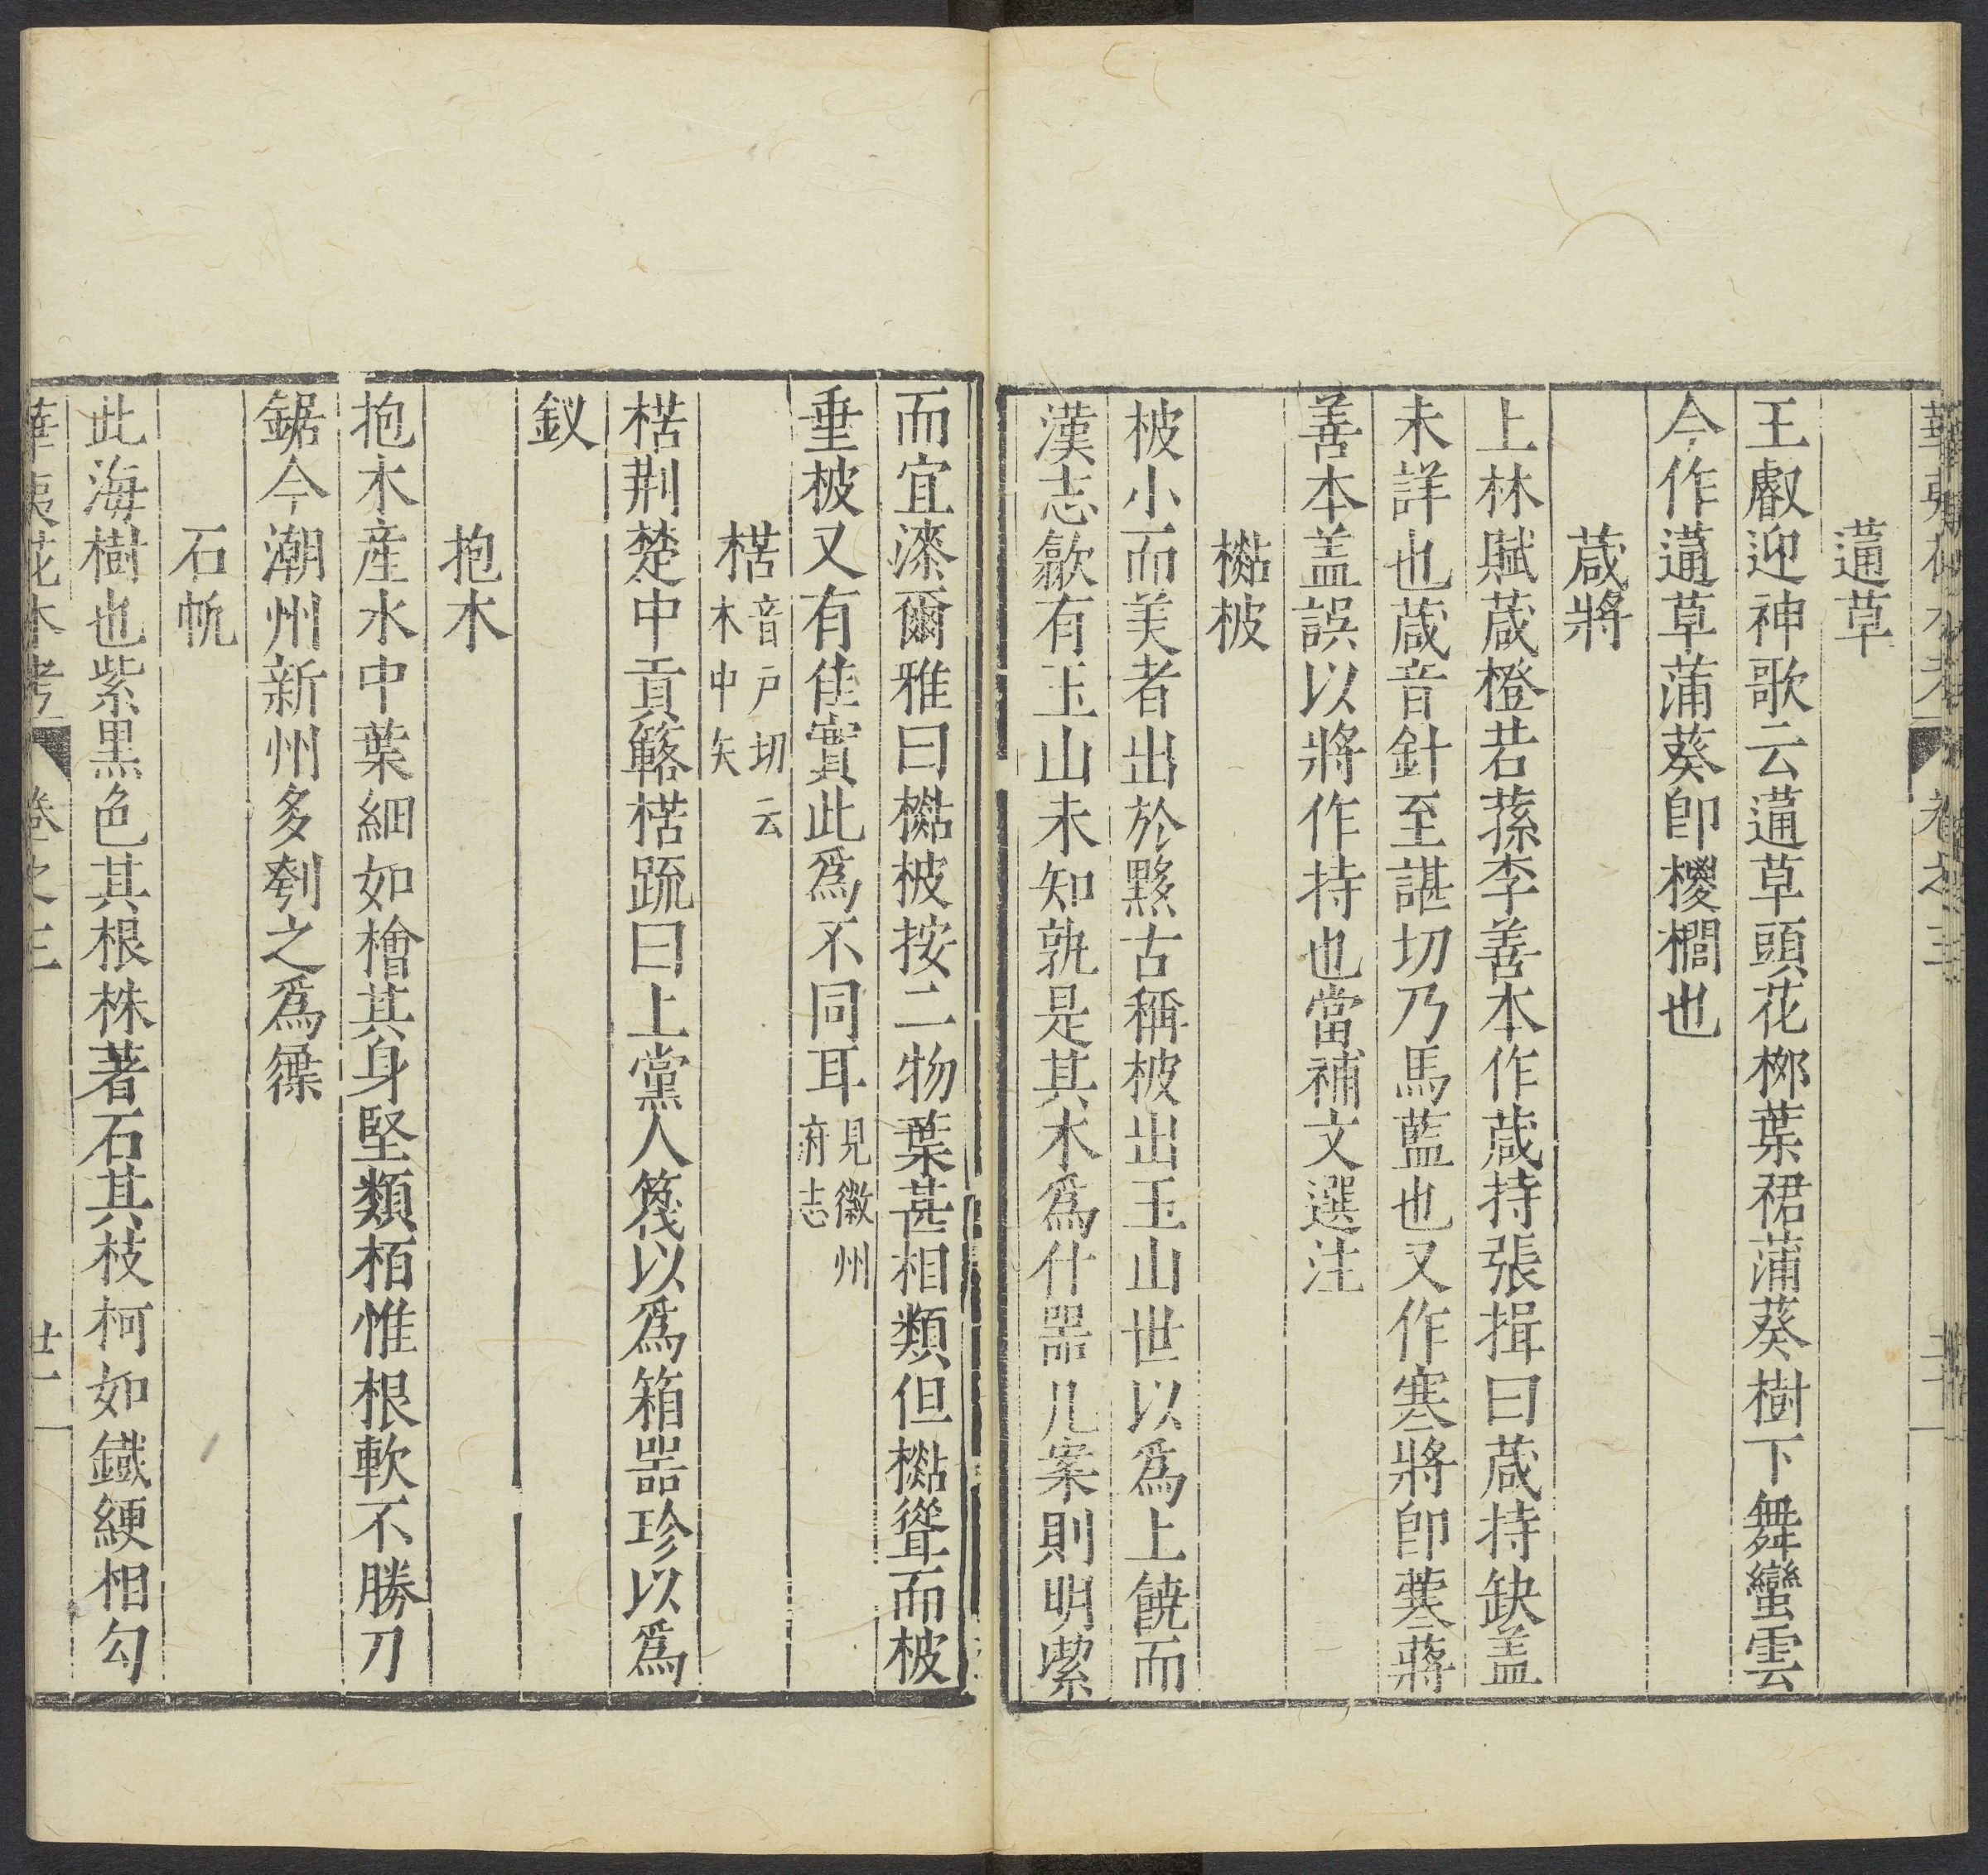 薖草
王叡迎神歌云薖草頭花栁葉裙蒲葵樹下舞蠻雲
今作薖草蒲葵卽椶櫚也
葴將
上林賦葴橙若蓀李善本作葴持張揖曰葴持缺盖
未詳也葴音針至諶切乃馬藍也又作寒將卽蔆蔣
善本盖誤以將作持也當補文選注
柀
柀小而美者出於黟古稱柀出玉山世以爲上饒而
漢志歙有玉山未知孰是其木爲什器几案則明潔
而宜漆爾雅曰柀按二物葉甚相類但聳而柀
垂柀又有佳實此爲不同耳見徽州府志
楛音戸切云木中矢
楛荆楚中貢簵楛䟽曰上黨人篾以爲箱噐珍以爲
釵
抱木
抱木産水中葉細如檜其身堅類栢惟根軟不勝刀
鋸今潮州新州多刳之爲屧
石帆
此海樹也紫黒色其根株著石其枝柯如鐵綆相勾
華夷花木考 卷之三 廿一